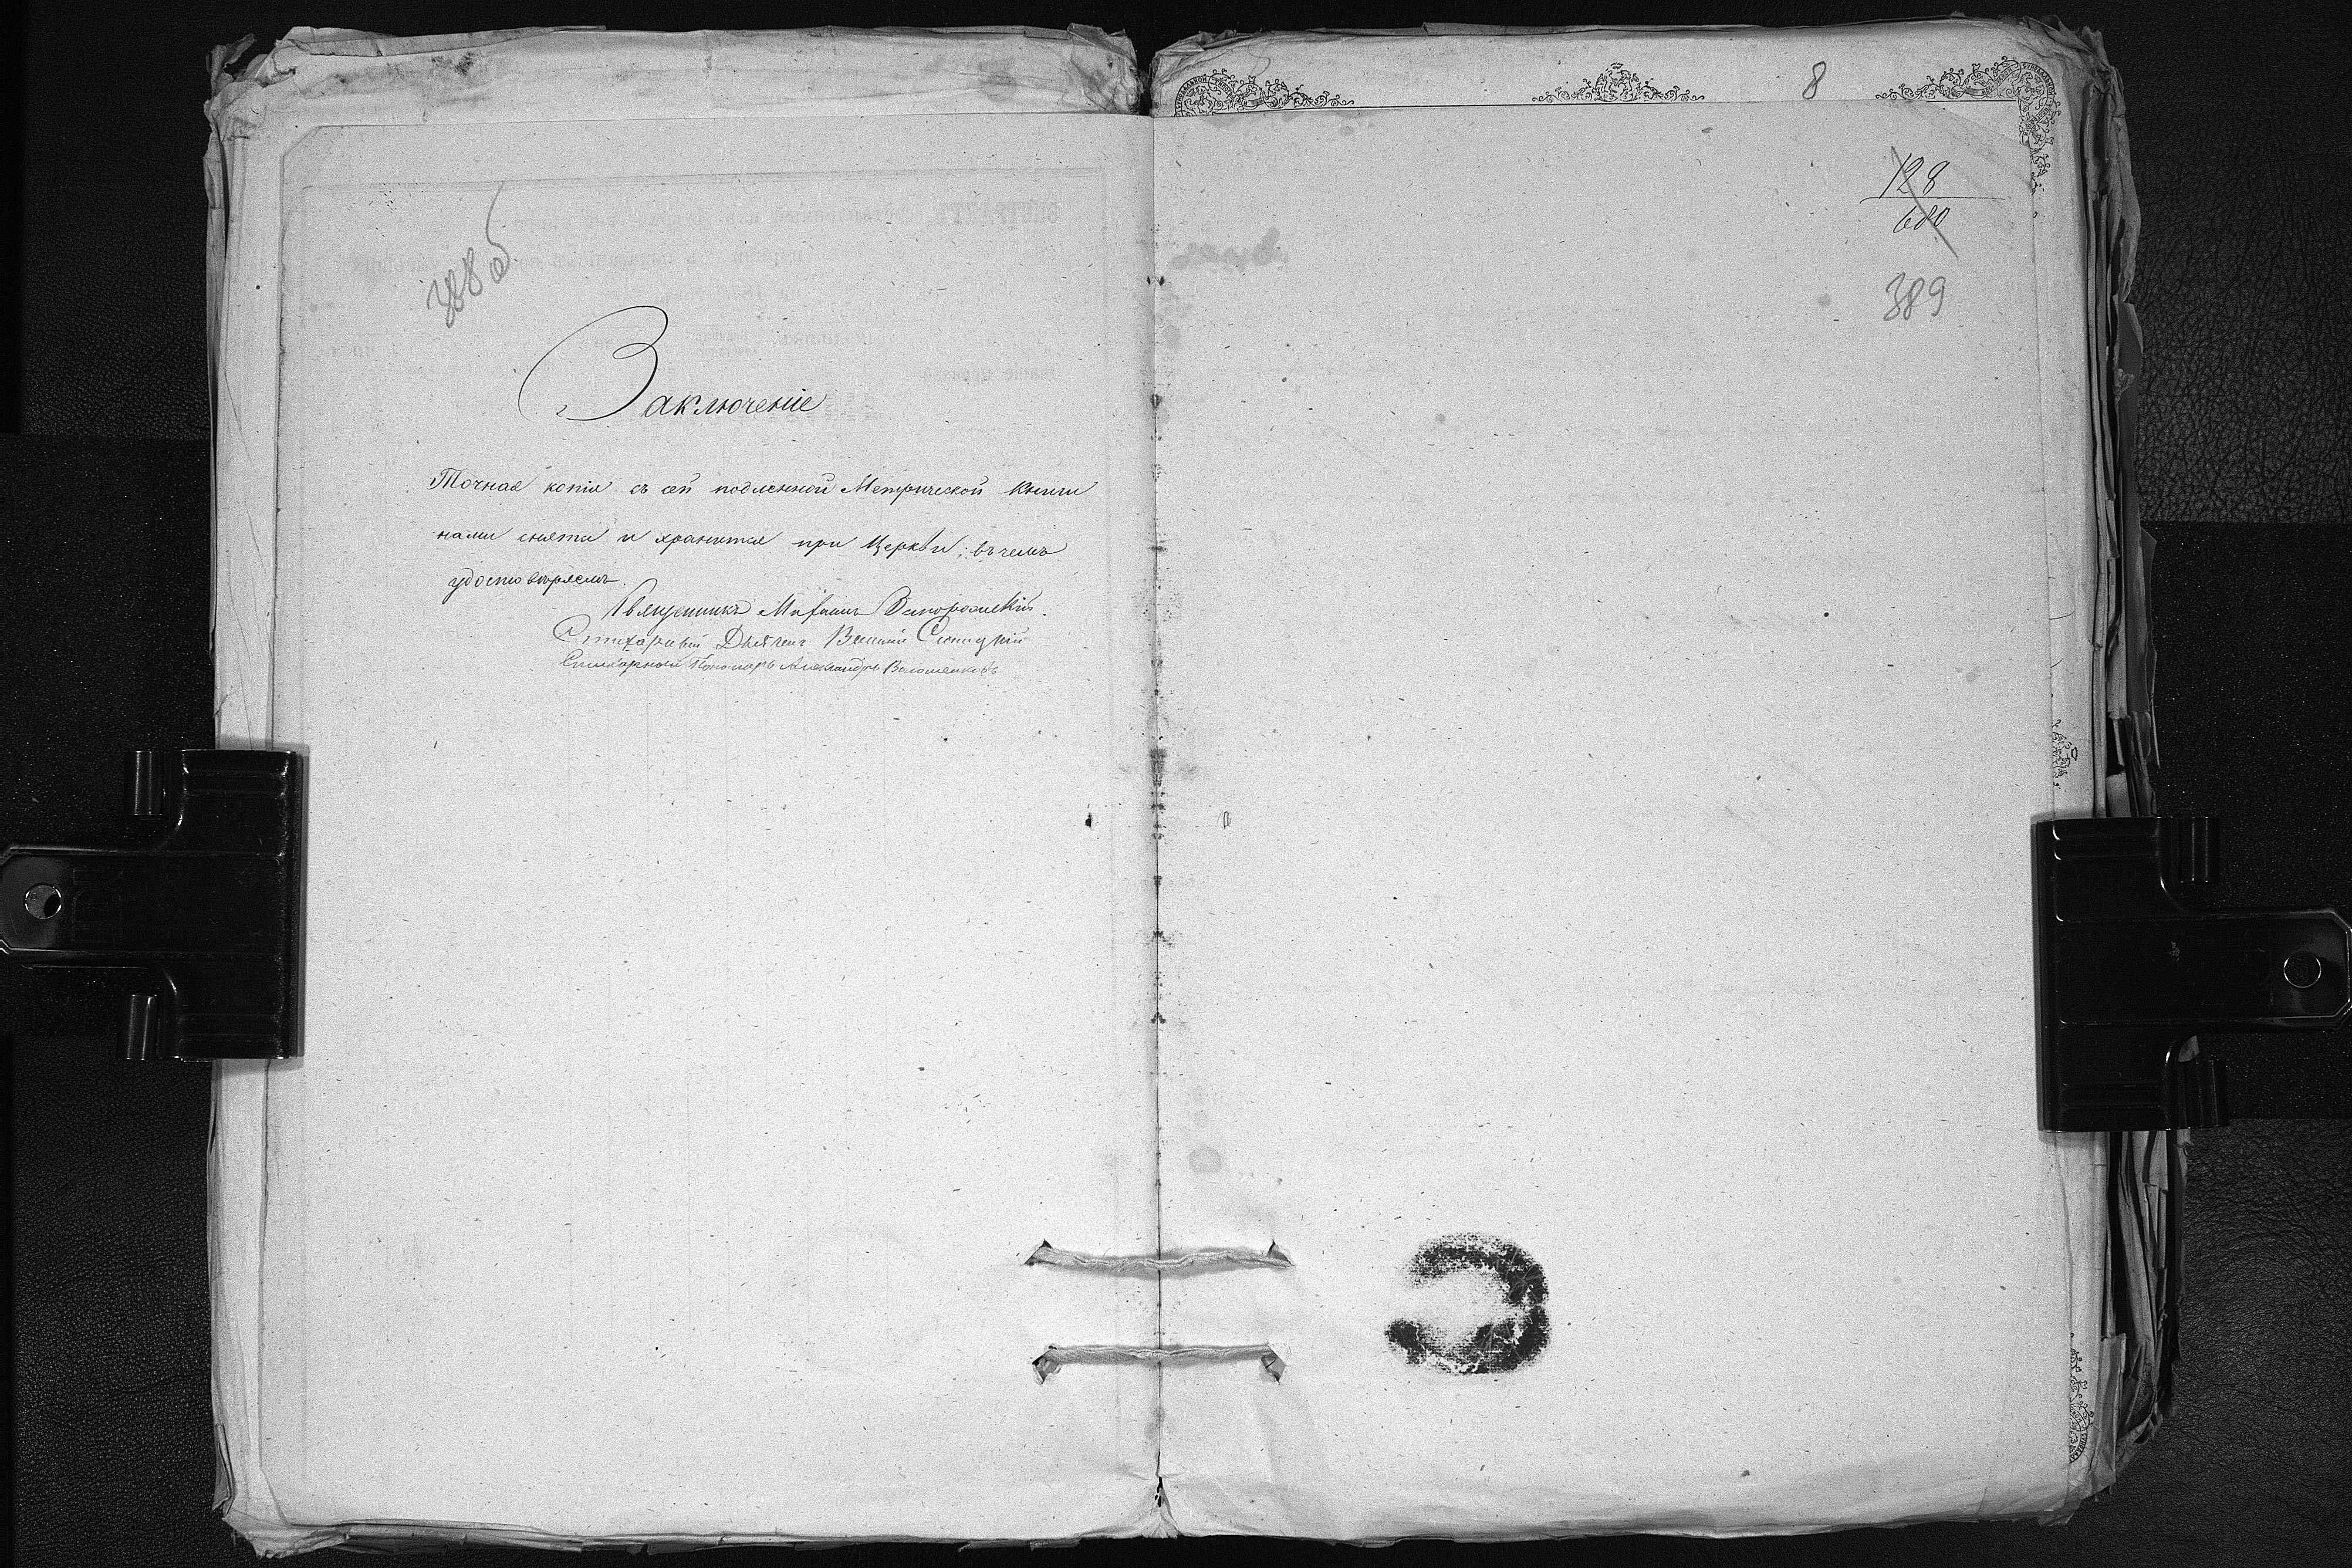 388 об
Заключеніе
Точная копія съ сей подленной Метрической Книги
нами снята и хранится при Церкви; въ чемъ
удостовѣряемъ.
Священникъ Михаилъ Запорожскій.
Стихарный Дьячекъ
Стихарный Пономарь Александръ
8
128
680
389